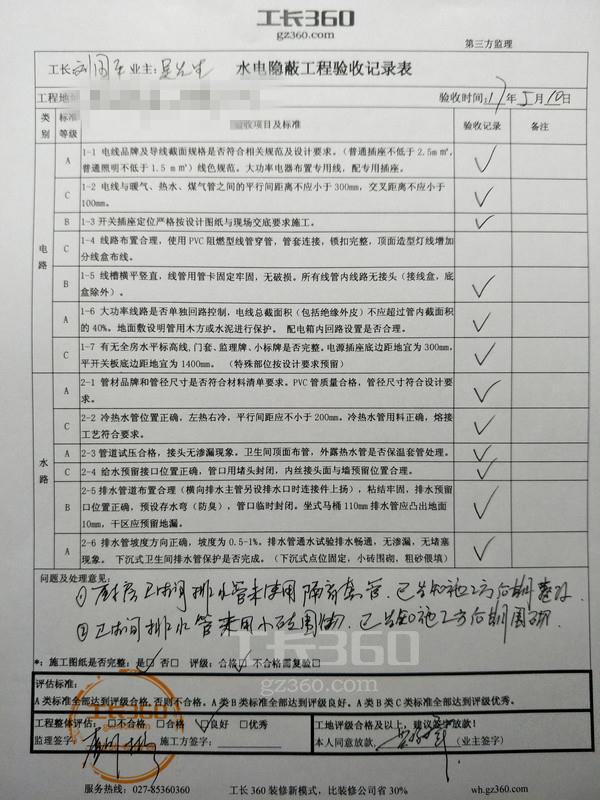 工长360
gz360.com
第三方监理
工长 刘国平 业主: 吴先生 水电隐蔽工程验收记录表
工程地址 验收时间: 17年5月10日
类别 标准等级 验收项目及标准 验收记录 备注
电路
A 1-1 电线品牌及导线截面规格是否符合相关规范及设计要求。（普通插座不低于2.5m㎡,
普通照明不低于1.5 m㎡）线色规范。大功率电器布置专用线，配专用插座。
C 1-2 电线与暖气、热水、煤气管之间的平行间距离不应小于300mm，交叉距离不应小于
100mm。
B 1-3 开关插座定位严格按设计图纸与现场交底要求施工。
C 1-4 线路布置合理，使用PVC阻燃型线管穿管，管套连接，锁扣完整，顶面造型灯线增加
分线盒布线。
B 1-5 线槽横平竖直，线管用管卡固定牢固，无破损。所有线管内线路无接头（接线盒，底
盒除外）。
A 1-6 大功率线路是否单独回路控制，电线总截面积（包括绝缘外皮）不应超过管内截面积
的40%。地面敷设明管用木方或水泥进行保护。 配电箱内回路设置是否合理。
C 1-7 有无全房水平标高线,门套、监理牌、小标牌是否完整。电源插座底边距地宜为300mm，
平开关板底边距地宜为1400mm。 （特殊部位按设计要求预留）
水路
A 2-1 管材品牌和管径尺寸是否符合材料清单要求。PVC管质量合格，管径尺寸符合设计要
求。
C 2-2 冷热水管位置正确，左热右冷，平行间距应不小于200mm。冷热水管用料正确，熔接
工艺符合要求。
A 2-3 管道试压合格，接头无渗漏现象。卫生间顶面布管，外露热水管是否保温套管处理。
C 2-4 给水预留接口位置正确，管口用堵头封闭，内丝接头面与墙预留位置合理。
B 2-5 排水管道布置合理（横向排水主管另设排水口时连接件上扬），粘结牢固，排水预留
口位置正确，预设存水弯（防臭），管口临时封闭。坐式马桶110mm排水管应凸出地面
10mm，干区应预留地漏。
A 2-6 排水管坡度方向正确，坡度为0.5-1%。排水管通水试验排水畅通，无渗漏，无堵塞
现象。 下沉式卫生间排水管保护是否完成。（下沉式点位固定，小砖围砌，粗砂偎填）
问题及处理意见:
①厨房卫生间排水管未使用隔音套管.已告知施工方后期
②卫生间排水管未用小砖围砌.已告知施工方后期围砌.
*: 施工图纸是否完整: 是□ 否□ 评级: 合格□ 不合格需复验□
工长360
gz360.com
评估标准:
A类标准全部达到评级合格,否则不合格。A类B类标准全部达到评级良好。A类B类C类标准全部达到评级优秀。
工程整体评估: □不合格 □合格 □良好 □优秀 工地评级合格及以上，建议签字放款！
监理签字: 施工方签字: 本人同意放款, （业主签字）
工长360
gz360.com
服务热线: 027-85360360 工长360装修新模式，比装修公司省30% wh.gz360.com